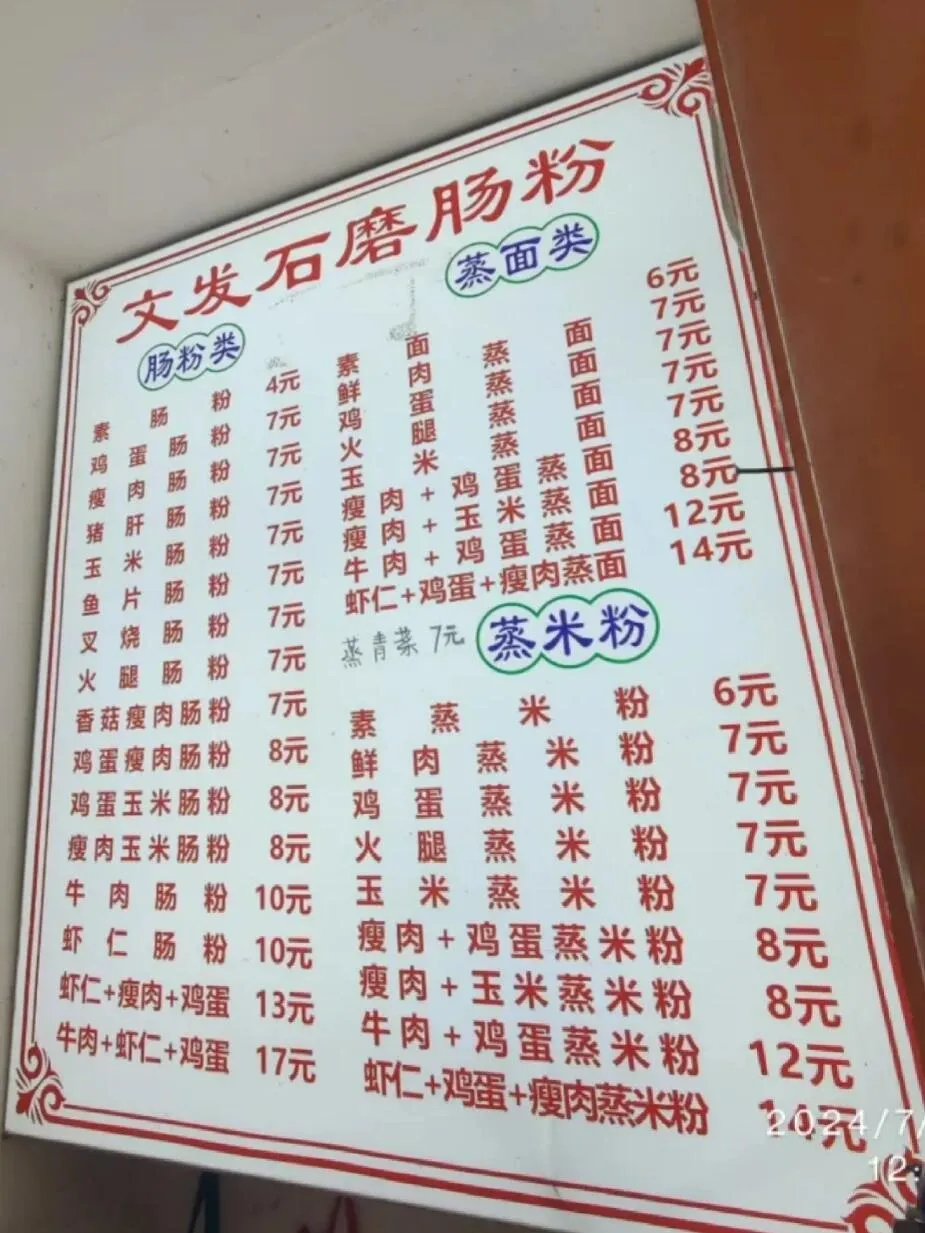 文发石磨肠粉
肠粉类
素肠粉 4元
鸡蛋肠粉 7元
瘦肉肠粉 7元
猪肝肠粉 7元
玉米肠粉 7元
鱼片肠粉 7元
叉烧肠粉 7元
火腿肠粉 7元
香菇瘦肉肠粉 7元
鸡蛋瘦肉肠粉 8元
鸡蛋玉米肠粉 8元
瘦肉玉米肠粉 8元
牛肉肠粉 10元
虾仁肠粉 10元
虾仁+瘦肉+鸡蛋 13元
牛肉+虾仁+鸡蛋 17元
蒸面类
素面 6元
鲜肉蒸面 7元
鸡蛋蒸面 7元
火腿蒸面 7元
玉米蒸面 7元
瘦肉+鸡蛋蒸面 8元
瘦肉+玉米蒸面 8元
牛肉+鸡蛋蒸面 12元
虾仁+鸡蛋+瘦肉蒸面 14元
蒸青菜 7元
蒸米粉
素蒸米粉 6元
鲜肉蒸米粉 7元
鸡蛋蒸米粉 7元
火腿蒸米粉 7元
玉米蒸米粉 7元
瘦肉+鸡蛋蒸米粉 8元
瘦肉+玉米蒸米粉 8元
牛肉+鸡蛋蒸米粉 12元
虾仁+鸡蛋+瘦肉蒸米粉 14元
2024/7/
12: